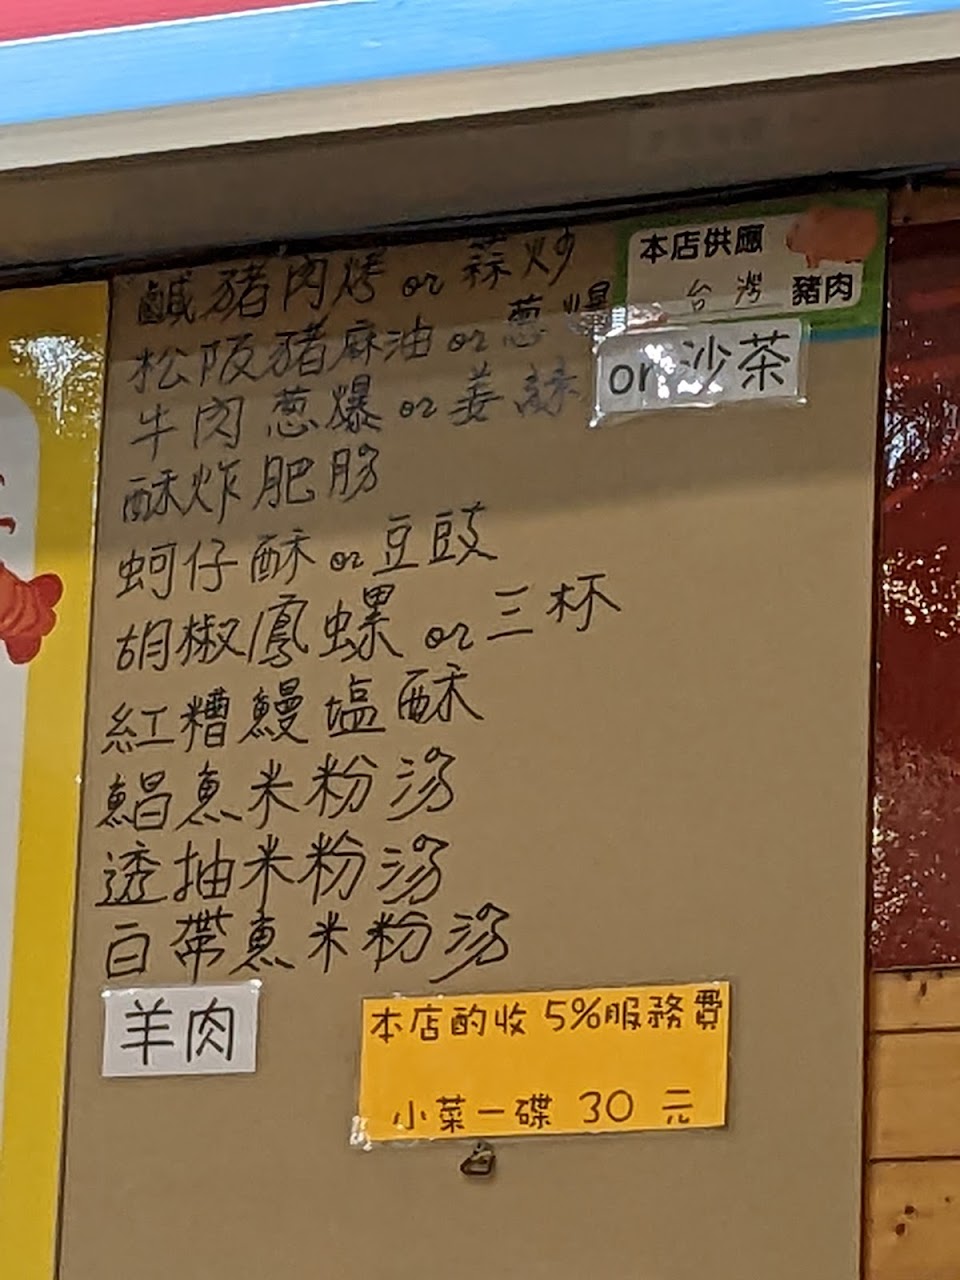 鹹豬肉烤 or 蒜炒
本店供應
台灣 豬肉
松阪豬麻油 or 蔥爆
牛肉蔥爆 or 姜絲
or 沙茶
酥炸肥腸
蚵仔酥 or 豆豉
胡椒鳳螺 or 三杯
紅糟鰻塩酥
鯧魚米粉湯
透抽米粉湯
白帶魚米粉湯
羊肉
本店酌收 5%服務費
小菜一碟 30 元